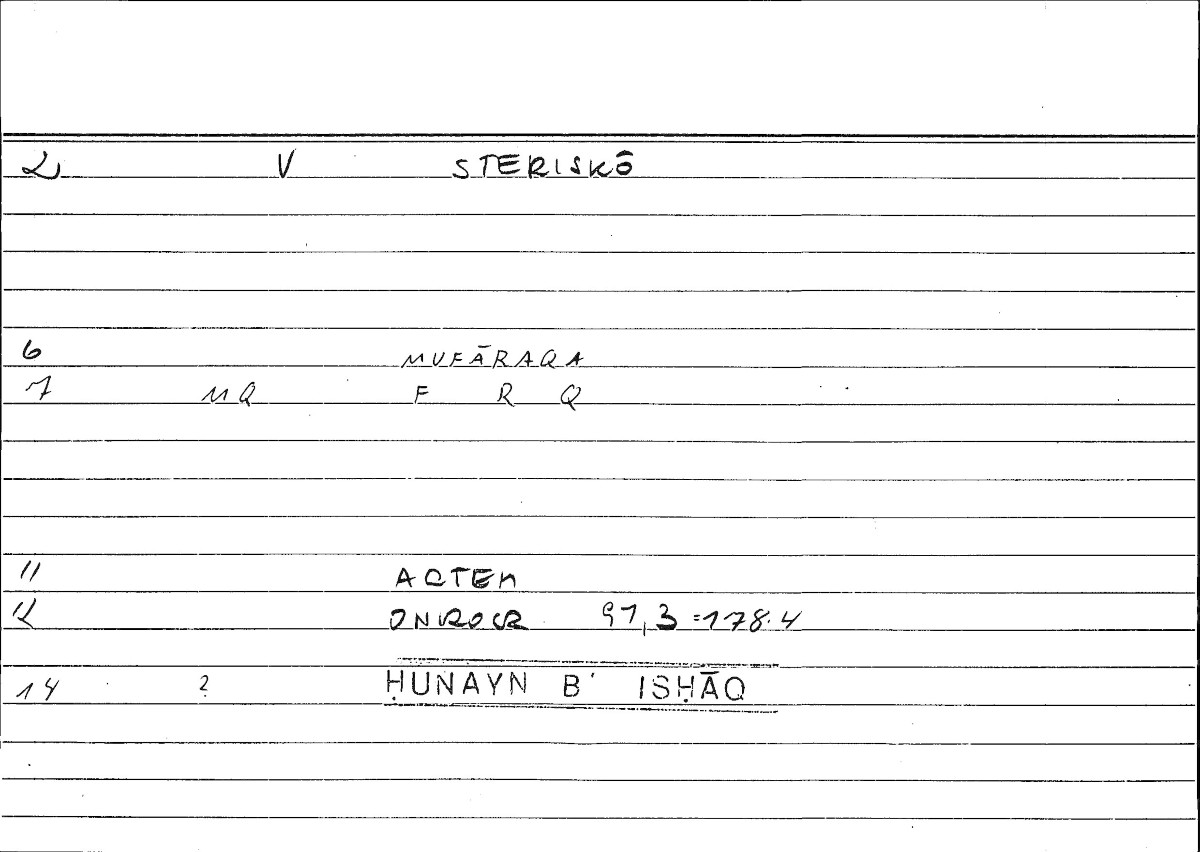 2 V STERISKŌ
6 MUFĀRAQA
7 MQ F R Q
11 ARTEM
12 ONIROCR 91,3=178.4
14 2 ḤUNAYN B' ISḤĀQ